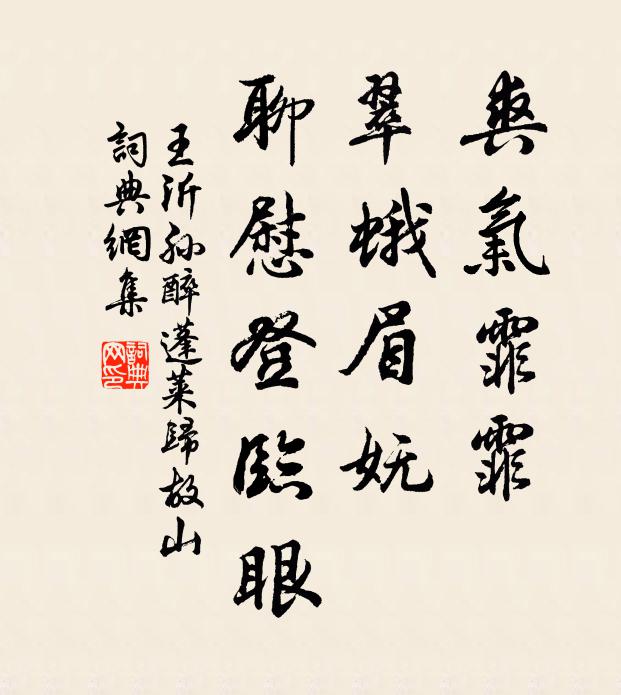 爽氣霏霏
翠蛾眉妩
聊慰登臨眼
王沂孙醉蓬萊歸故山
詞典網集
詞典网印